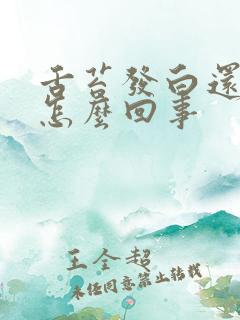 舌苔發白還
怎麼回事
王全超
未經同意禁止轉載